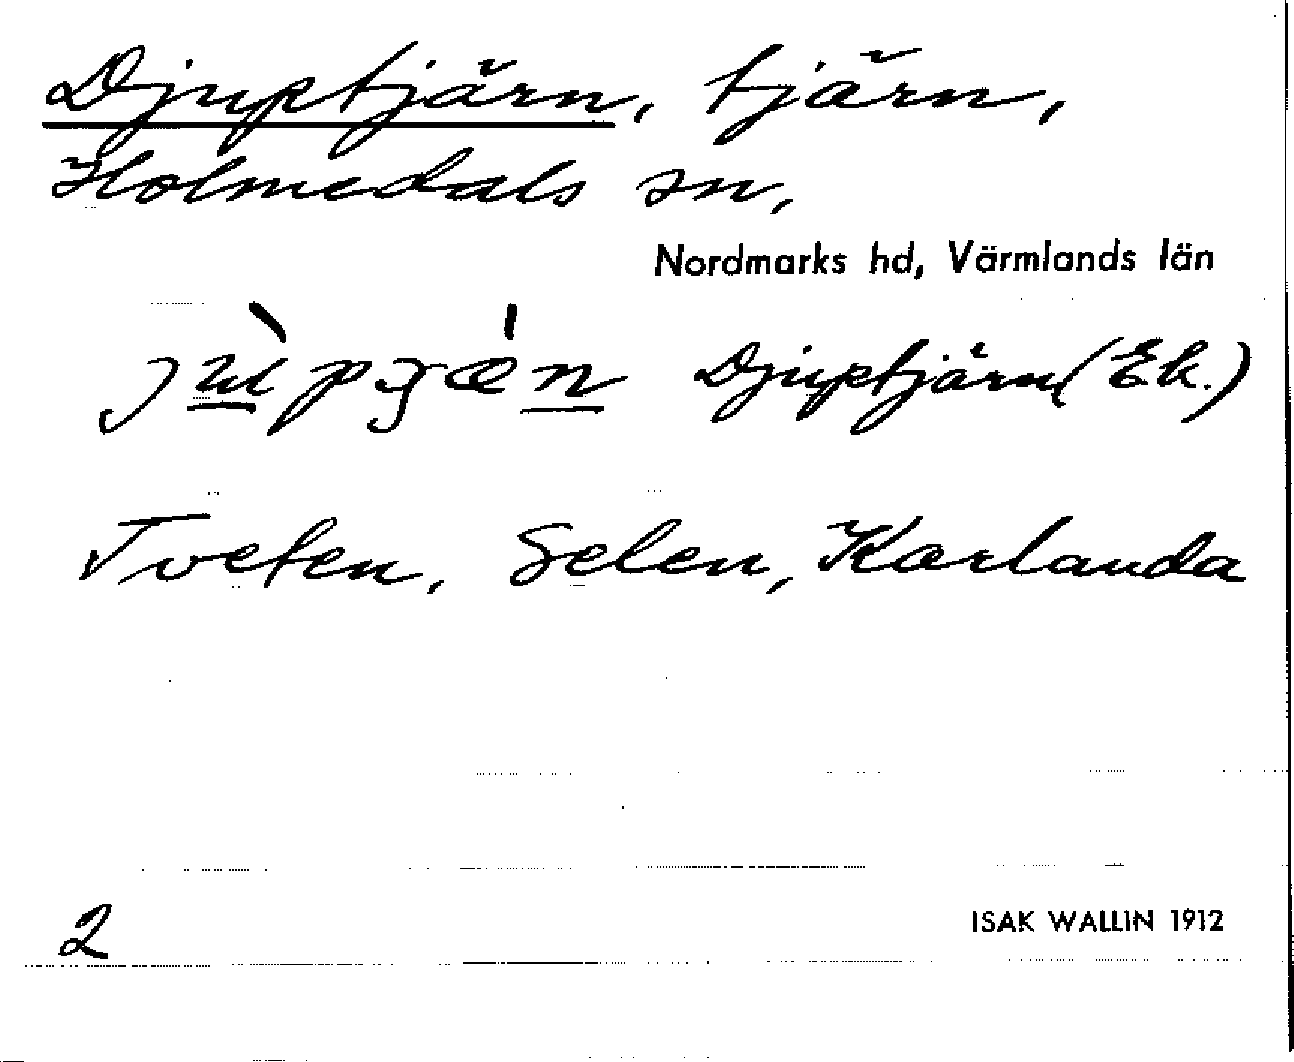 Djuptjärn, tjärn,
Holmedals sn,
Nordmarks hd, Värmlands län
Djuptjärn (Ek.)
Tveten, Selen, Karlanda
2
ISAK WALLIN 1912